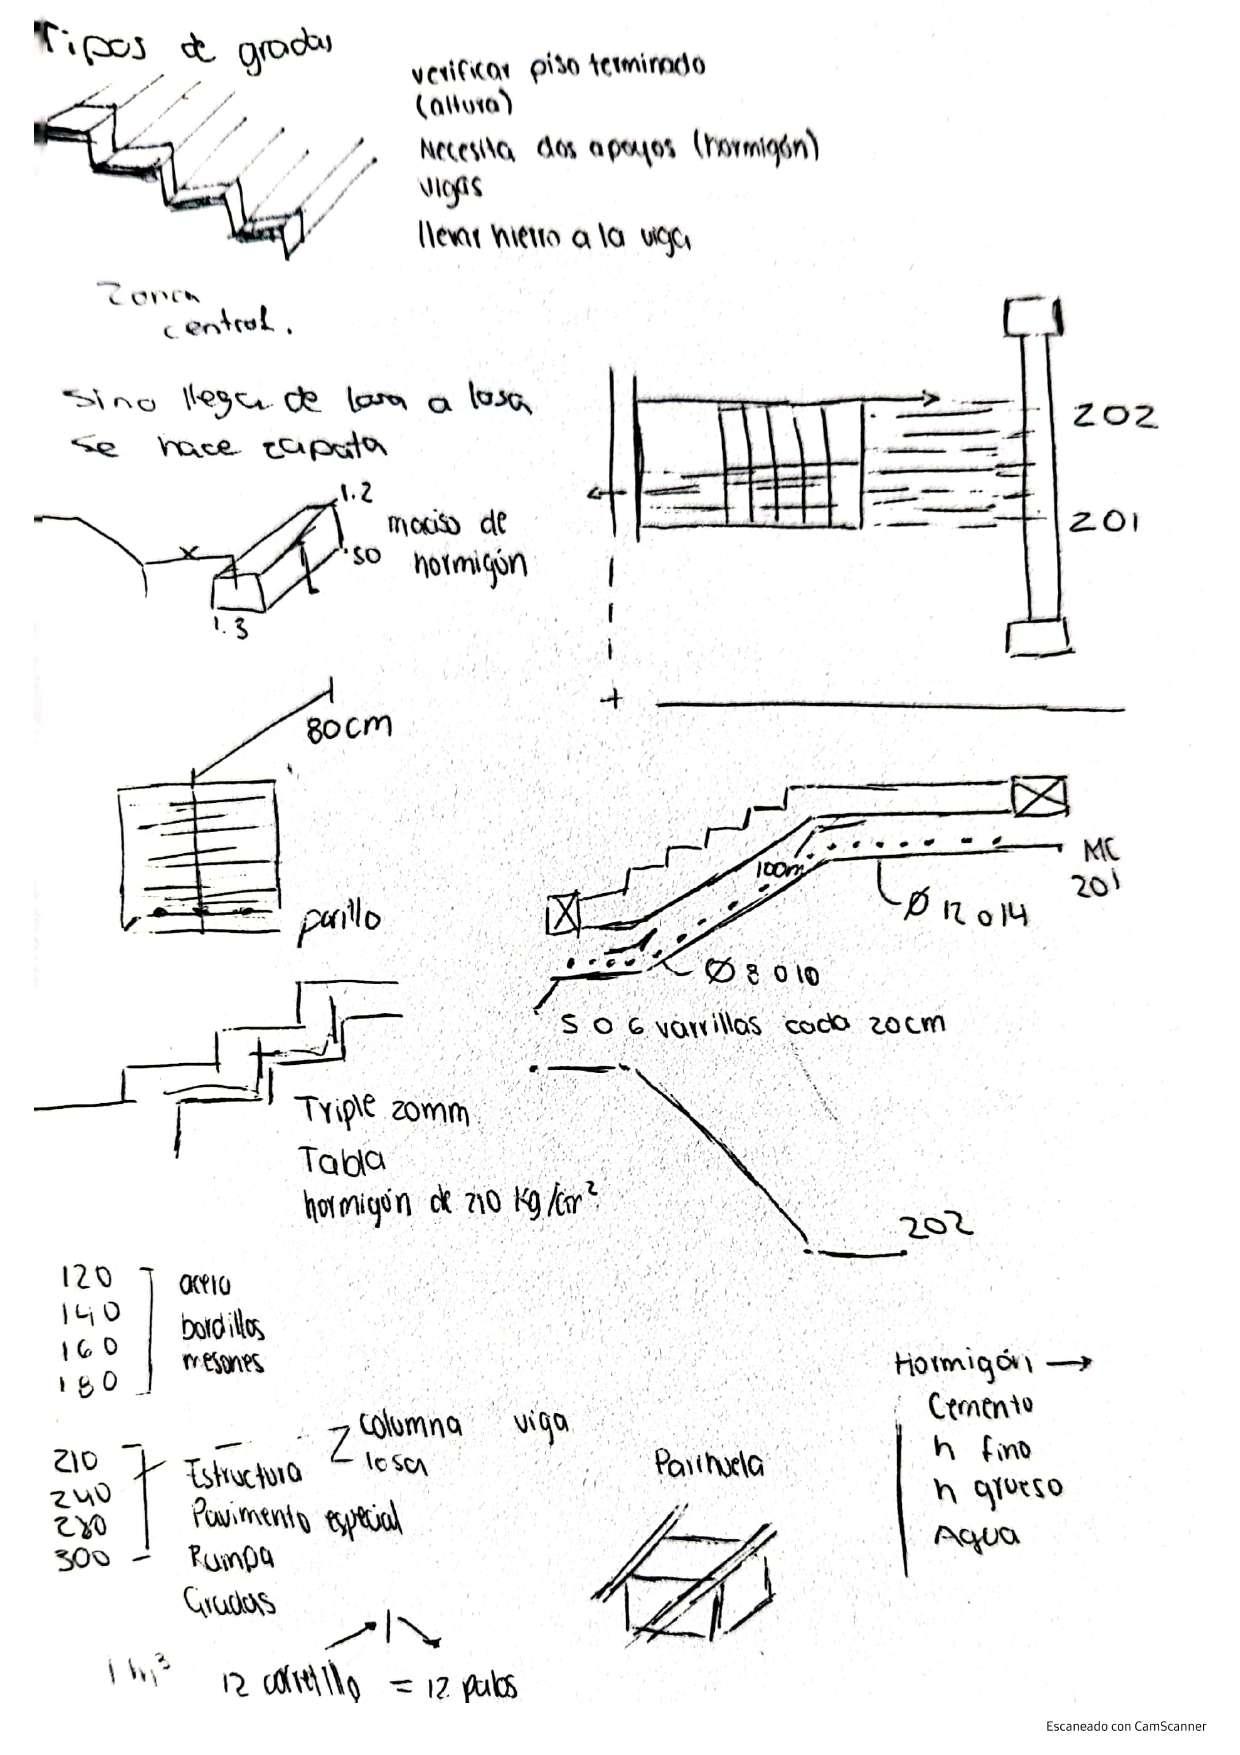 Tipos de gradas
verificar piso terminado
(altura)
Necesita dos apoyos (hormigón)
vigas
llevar hierro a la viga
Zona
central.
Sino llega de losa a losa
se hace zapata
1.2
maciso de
.50
hormigón
1.3
202
201
80cm
parillo
100m
MC
201
Ø 12 o 14
Ø 8 o 10
5 o 6 varrillas cada 20cm
Triple 20mm
Tabla
hormigón de 210 kg/cm²
202
120
140
160
180
acero
bordillos
mesones
210
240
280
300
Estructura
columna viga
losa
Pavimento especial
Rampa
Gradas
Parihuela
Hormigón →
Cemento
h fino
h grueso
Agua
1 m³
12 carretillo = 12 palas
Escaneado con CamScanner